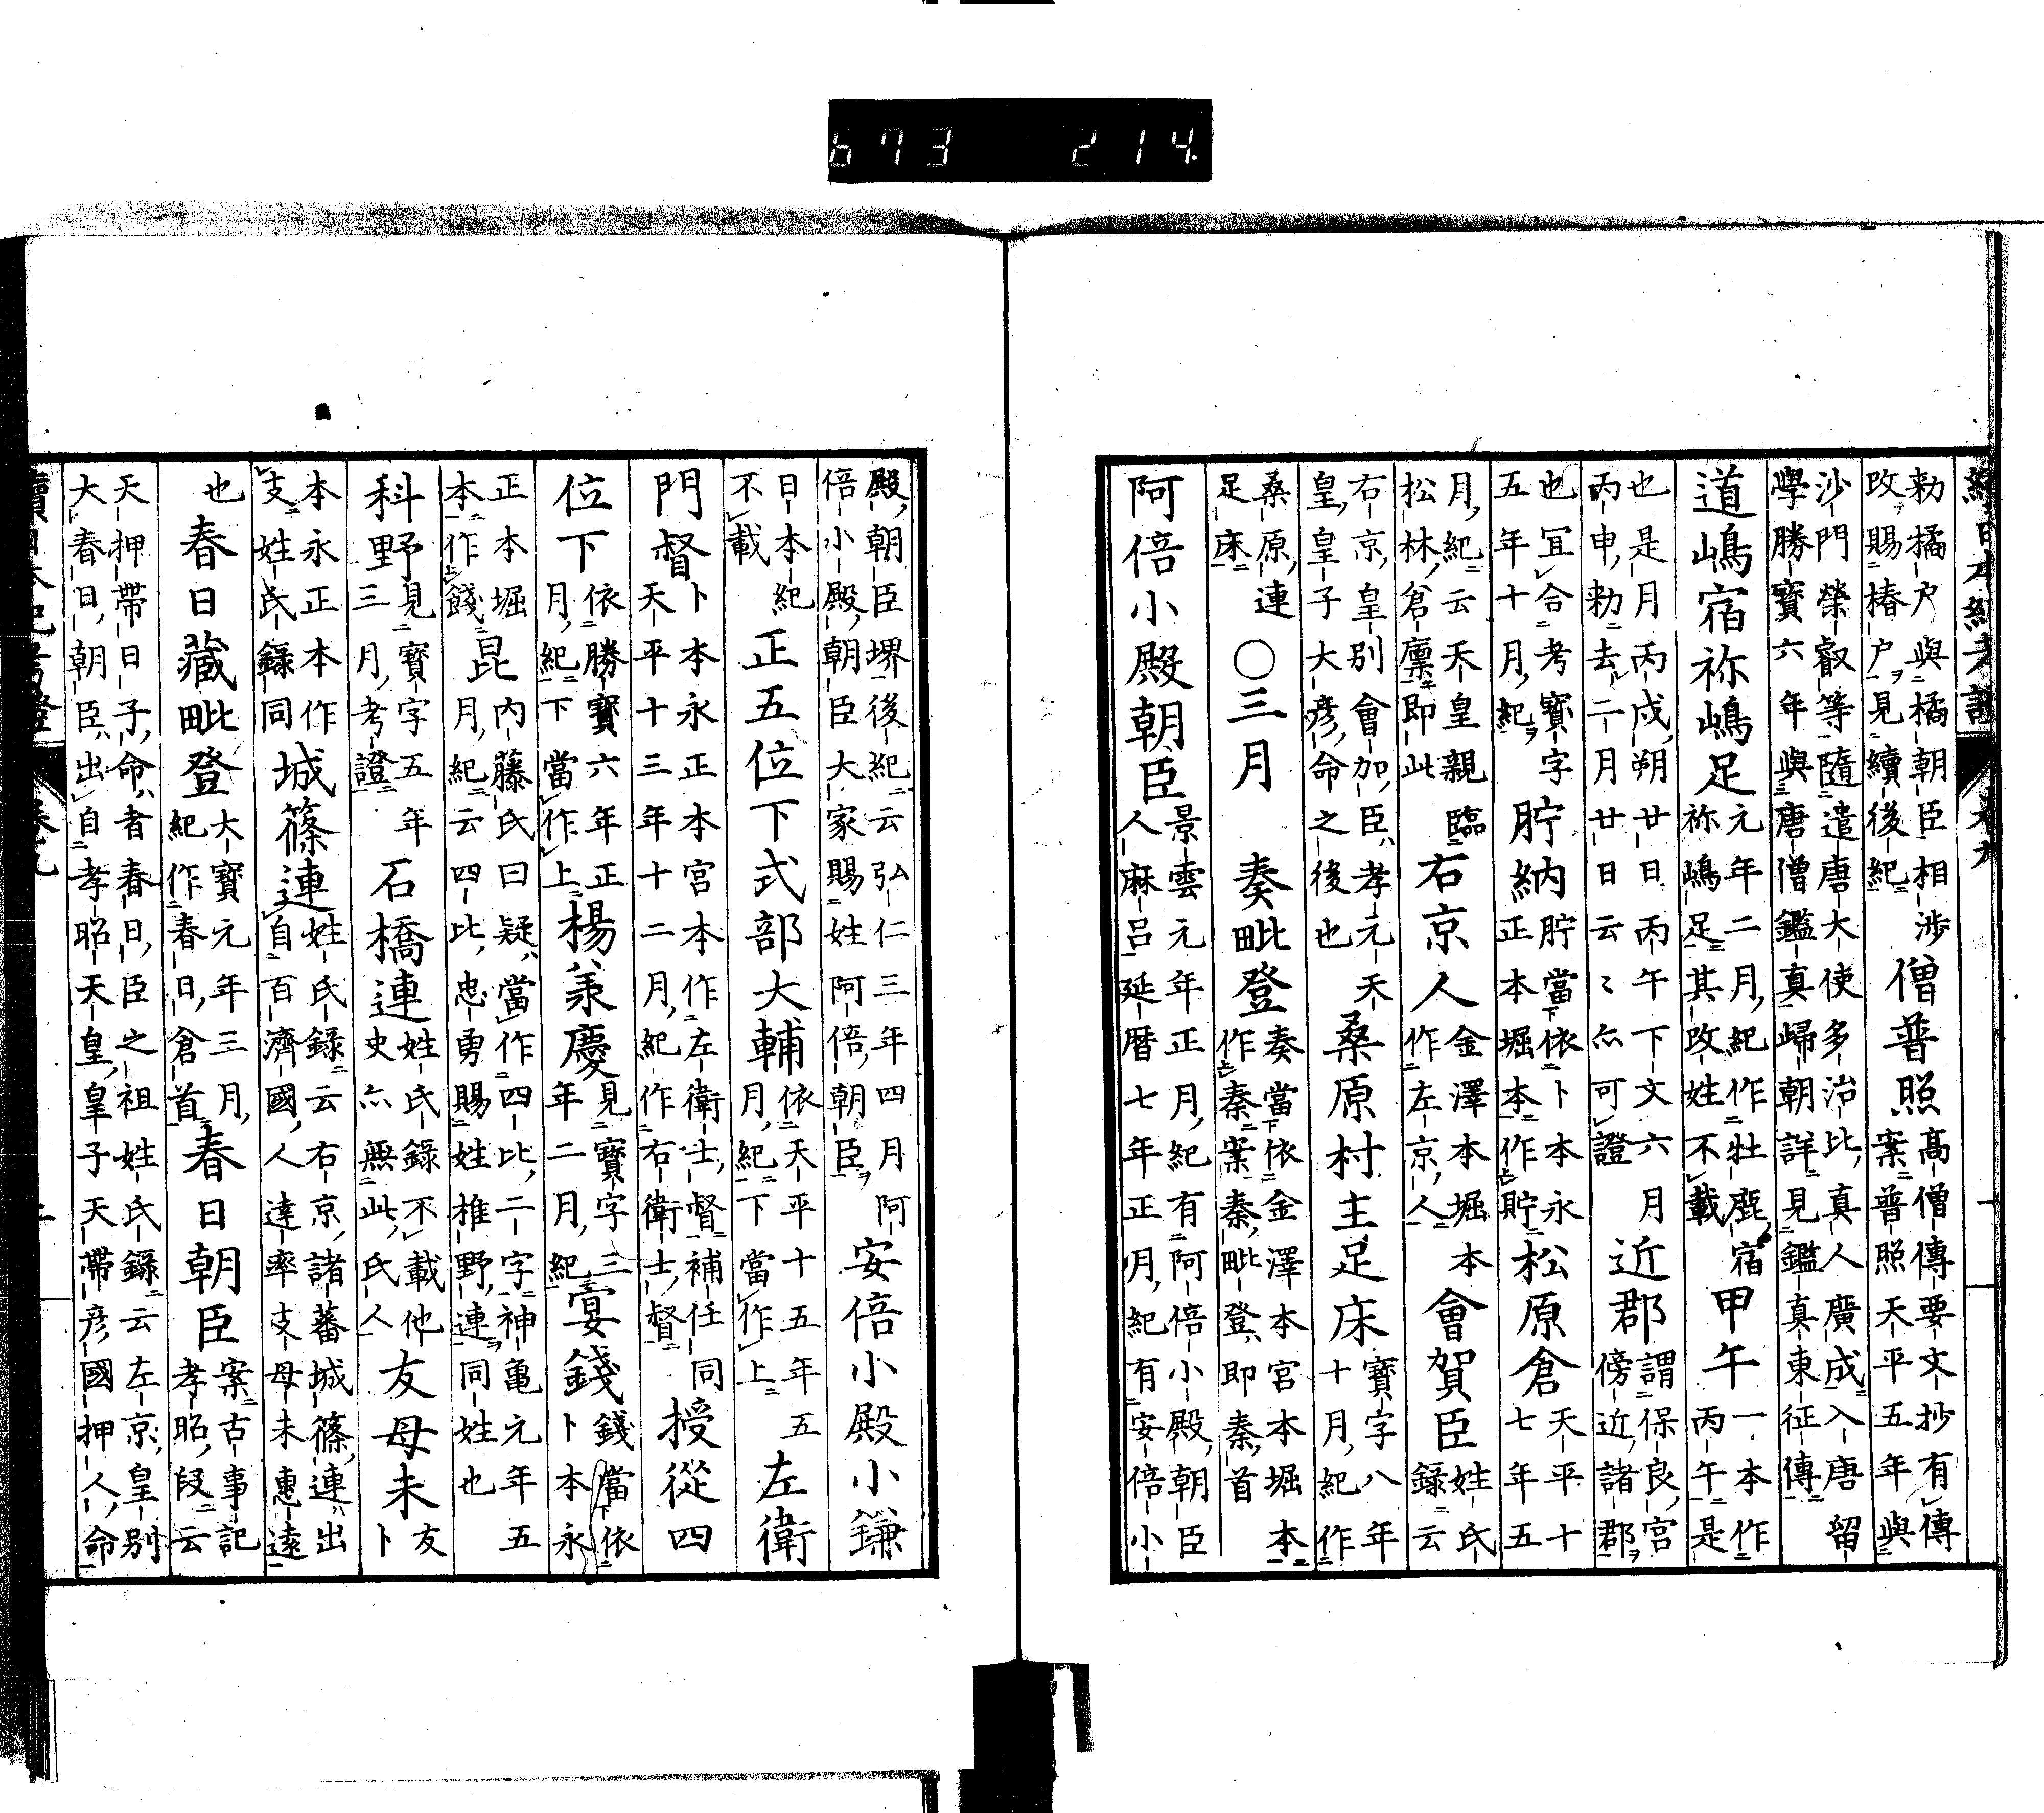 績日本紀考證 卷九
勅橘戸與橘朝臣相渉
改賜椿戸見續後紀
僧普照
高僧傳要文抄有傳
案普照天平五年與
沙門榮叡等隨遣唐大使多治比真人廣成入唐留
學勝寶六年與唐僧鑑真歸朝詳見鑑真東征傳
道嶋宿祢嶋足
元年二月紀作牡鹿宿
祢嶋足其改姓不載
甲午
一本作
丙午是
也是月丙戌朔廿日丙午下文六月
丙申勅去二月廿日云〻亦可證
近郡
謂保良宮
傍近諸郡
也冝合考寶字
五年十月紀
貯納
貯當依卜本永
正本堀本作貯
松原倉
天平十
七年五
月紀云天皇親臨
松林倉廩即此
右京人
金澤本堀本
作左京人
會賀臣
姓氏
錄云
右京皇別會加臣孝元天
皇皇子大彦命之後也
桑原村主足床
寶字八年
十月紀作
桑原連
足床
○三月
奏毗登
奏當依金澤本宮本堀本
作秦案秦毗登即秦首
阿倍小殿朝臣
景雲元年正月紀有阿倍小殿朝臣
人麻呂延暦七年正月紀有安倍小
殿朝臣堺後紀云弘仁三年四月阿
倍小殿朝臣大家賜姓阿倍朝臣
安倍小殿小鎌
日本紀
不載
正五位下式部大輔
依天平十五年五
月紀下當作上
左衛
門督
卜本永正本宮本作左衛士督補任同
天平十三年十二月紀作右衛士督
授從四
位下
依勝寶六年正
月紀下當作上
楊羕慶
見寶字三
年二月紀
宴錢
錢當依
卜本永
正本堀
本作餞
昆
内藤氏曰疑當作四比二字神亀元年五
月紀云四比忠勇賜姓椎野連同姓也
科野
見寶字五年
三月考證
石橋連
姓氏錄不載他
史亦無此氏人
友母未
友
卜
本永正本作
支姓氏錄同
城篠連
姓氏錄云右京諸蕃城篠連出
自百濟國人達率支母未惠遠
也
春日藏毗登
大寶元年三月
紀作春日倉首
春日朝臣
案古事記
孝昭段云
天押帶日子命者春日臣之祖姓氏錄云左京皇別
大春日朝臣出自孝昭天皇皇子天帶彦國押人命
續日本紀考證 卷九 二